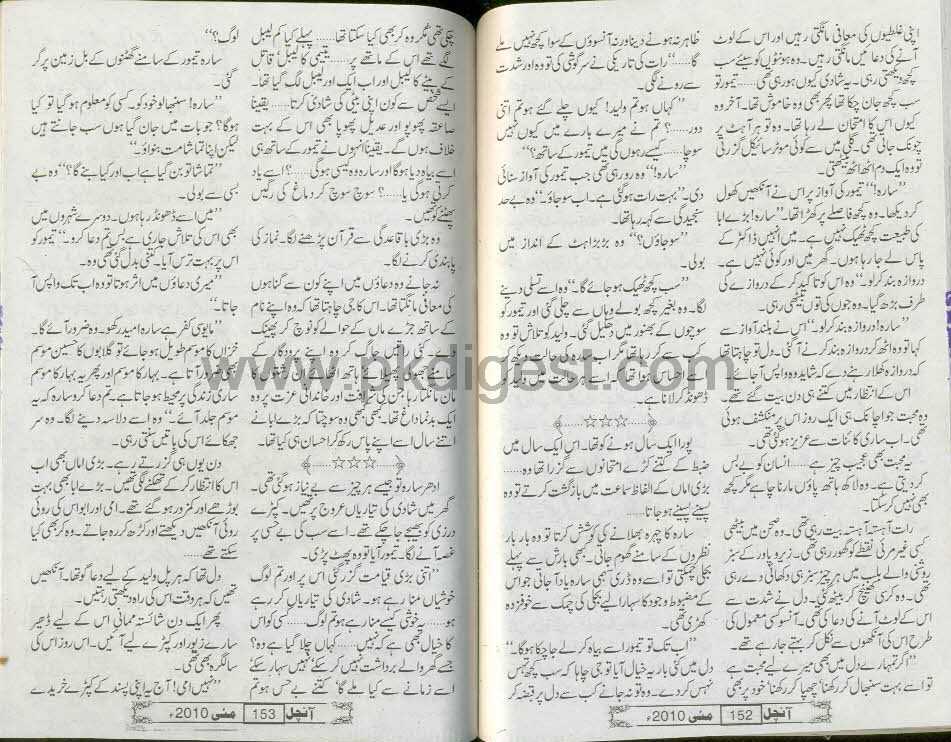 اپنی غلطیوں کی معافی مانگتی رہیں اور اس کے لوٹ
آنے کی دعا میں مانگتی رہیں۔ وہ ہونٹوں کو سیئے سب
کچھ دیکھتی رہی۔ یہ شادی کیوں ہو رہی تھی۔ تیمور تو
سب کچھ جان چکا تھا پھر بھی وہ خاموش تھا۔ آخر وہ
کیوں اس کا امتحان لے رہا تھا۔ وہ تو ہر آہٹ پر
چونک جاتی تھی۔ گلی میں سے کوئی موٹر سائیکل گزرتی
تو وہ ایک دم اٹھ اٹھ بیٹھتی۔
”سارہ!“ تیمور کی آواز پر اس نے آنکھیں کھول
کر دیکھا۔ وہ کچھ فاصلے پر کھڑا تھا۔ ”سارہ! بڑے ابا
کی طبیعت کچھ ٹھیک نہیں ہے۔ میں انہیں ڈاکٹر کے
پاس لے جا رہا ہوں۔ گھر میں اور کوئی نہیں ہے۔
دروازہ بند کر لو۔“ وہ اس کو تاکید کر کے دروازے کی
طرف بڑھ گیا۔ وہ جوں کی توں بیٹھی رہی۔
”سارہ! دروازہ بند کر لو۔“ اس نے بلند آواز سے
کہا تو وہ اٹھ کر دروازہ بند کرنے آ گئی۔ دل تو چاہتا تھا
کہ دروازہ کھلا رہنے دے کہ شاید وہ واپس آ جائے۔
اس کے انتظار میں کتنے ہی دن بیت گئے تھے۔
وہ محبت جو اچانک ہی ایک روز اس پر منکشف ہوئی
تھی۔ اب ساری کائنات سے عزیز ہو گئی تھی۔
یہ محبت بھی عجیب چیز ہے...... انسان کو بے بس
کر دیتی ہے۔ وہ لاکھ ہاتھ پاؤں مارنا چاہے مگر کچھ
بھی نہیں کر سکتا۔
رات آہستہ آہستہ بیت رہی تھی۔ وہ صحن میں بیٹھی
کسی غیر مرئی نقطے کو گھور رہی تھی۔ زیرو پاور کے سبز
روشنی والے بلب میں ہر چیز سبز ہی دکھائی دے رہی
تھی۔ وہ کرسی کھینچ کر بیٹھ گئی۔ دل نے شدت سے
اس کے لوٹ آنے کی دعا کی تھی۔ آنسو کی معمول کی
طرح اس کی آنکھوں سے نکل کر بہتے جا رہے تھے۔
”اگر تمہارے دل میں بھی میرے لیے محبت ہے
تو اسے بہت سنبھال کر رکھنا‘ چھپا کر رکھنا‘ خود پر بھی
ظاہر نہ ہونے دینا ورنہ آنسوؤں کے سوا کچھ نہیں ملے
گا......“ رات کی تاریکی نے سرگوشی کی تو وہ اور شدت
سے رونے لگی۔
”کہاں ہو تم ولید! کیوں چلے گئے ہو تم اتنی
دور...... ؟ تم نے میرے بارے میں کیوں نہیں
سوچا...... کیسے رہوں گی میں تیمور کے ساتھ؟“
”سارہ!“ وہ رو رہی تھی جب تیمور کی آواز سنائی
دی۔ ”بہت رات ہو گئی ہے۔ اب سو جاؤ۔“ وہ بے حد
سنجیدگی سے کہہ رہا تھا۔
”سو جاؤں؟“ وہ بڑبڑاہٹ کے انداز میں
بولی۔
”سب کچھ ٹھیک ہو جائے گا۔“ وہ اسے تسلی دینے
لگا۔ وہ بغیر کچھ بولے وہاں سے چلی گئی اور تیمور کو
سوچوں کے بھنور میں دھکیل گئی۔ ولید کو تلاش تو وہ
کب سے کر رہا تھا مگر اب اسے سارہ کی حالت دیکھ کر
بے حد احساس ہوا تھا۔ اسے ہر حالت میں ولید کو
ڈھونڈ کر لانا ہے۔
☆☆☆
پورا ایک سال ہونے کو تھا۔ اس ایک سال میں
ضبط کے کتنے کڑے امتحانوں سے گزرا تھا وہ......
بڑی اماں کے الفاظ سماعت میں بازگشت کرتے تو وہ
پسینے پسینے ہو جاتا۔
سارہ کا چہرہ بھلانے کی کوشش کرتا تو وہ بار بار
نظروں کے سامنے گھوم جاتی۔ بھی بارش سے پہلے
بجلی چمکتی تو اسے وہ ڈری سہمی سارہ یاد آ جاتی جو اس
کے مضبوط وجود کا سہارا لیے بجلی کی چمک سے خوفزدہ
کھڑی تھی۔
”اب تک تو تیمور اسے بیاہ کر لے جا چکا ہوگا۔“
دل میں کئی بار یہ خیال آیا تو جی چاہا کہ سب کچھ تہس
نہس کر دے۔ وہ تو نہ جانے کب سے دل پر قبضہ کر
آنچل 152 مئی 2010ء
چکی تھی مگر وہ کر بھی کیا سکتا تھا...... پہلے کیا کم لیبل
لگے تھے اس کے ماتھے پر...... یتیمی کا لیبل‘ قاتل
کے بیٹے کا لیبل اور اب ایک اور لیبل لگ گیا تھا۔
ایسے شخص سے کون اپنی بیٹی کی شادی کرتا...... یقیناً
صاعقہ پھوپو اور عدیل پھوپا بھی اس کے بہت
خلاف ہوں گے۔ یقیناً انہوں نے تیمور کے ساتھ ہی
اسے بیاہ دیا ہوگا اور سارہ وہ کیسی ہو گی......؟ اسے یاد
کرتی ہو گی یا......؟ سوچ سوچ کر دماغ کی رگیں
پھٹنے کو تھیں۔
وہ بڑی باقاعدگی سے قرآن پڑھنے لگا۔ نماز کی
پابندی کرنے لگا۔
نہ جانے وہ دعاؤں میں اپنے کون سے گناہوں
کی معافی مانگتا تھا۔ اس کا جی چاہتا تھا کہ وہ اپنے نام
کے ساتھ جڑے ماں کے حوالے کو نوچ کر پھینک
دے۔ کئی راتیں جاگ کر وہ اپنے پروردگار کے
سامنے روتا تھا‘ ان رشتوں کا
مان مانگتا رہا جن کی شرافت اور خاندانی عزت پر وہ
ایک بدنما داغ تھا۔ کبھی کبھی وہ سوچتا کہ بڑے ابا نے
اتنے سال اسے اپنے پاس رکھ کر احسان ہی کیا تھا۔
☆☆☆
ادھر سارہ تو جیسے ہر چیز سے بے نیاز ہو گئی تھی۔
گھر میں شادی کی تیاریاں عروج پر تھیں۔ کپڑے
درزی کو بھیجے جا چکے تھے۔ اسے سب کی بے حسی پر
غصہ آنے لگا۔ تیمور آیا تو وہ پھٹ پڑی۔
”اتنی بڑی قیامت گزر گئی اس پر اور تم لوگ
خوشیاں منا رہے ہو۔ شادی کی تیاریاں کر رہے
ہو...... یہ خوشی کیسے منا رہے ہو تم لوگ...... کسی کو اس
کا خیال بھی ہے کہ نہیں...... کہاں چلا گیا ہے وہ؟
جسے گھر والے برداشت نہیں کر سکے نہیں سہار سکے
اسے زمانے سے کیا ملے گا‘ کتنے بے حس ہو تم
لوگ؟“
سارہ تیمور کے سامنے گھٹنوں کے بل زمین پر گر
گئی۔
”سارہ! سنبھالو خود کو۔ کسی کو معلوم ہو گیا تو کیا
ہوگا؟ جو بات میں جان گیا ہوں سب جانتے ہیں
لیکن اپنا تماشا مت بنواؤ۔“
”تماشا تو بن گیا ہے اب اور کیا بنے گا؟“ وہ بے
بسی سے بولی۔
”میں اسے ڈھونڈ رہا ہوں۔ دوسرے شہروں میں
بھی اس کی تلاش جاری ہے بس تم دعا کرو۔“ تیمور کو
اس پر بہت ترس آیا۔ کتنی بدل گئی تھی وہ۔
”میری دعاؤں میں اثر ہوتا تو وہ اب تک واپس آ
جاتا۔
”مایوسی کفر ہے سارہ امید رکھو۔ وہ ضرور آئے گا۔
خزاں کا موسم طویل ہو جائے تو گلابوں کا حسین موسم
بھی ضرور آتا ہے۔ بہار کا موسم اور پھر یہ بہار کا موسم
ساری زندگی پر محیط ہو جاتا ہے۔ تم دعا کرو سارہ کہ یہ
موسم جلد آئے۔“ وہ اسے دلاسہ دینے لگا۔ وہ سر
جھکائے اس کی باتیں سنتی رہی۔
دن یوں ہی گزرتے رہے۔ بڑی اماں بھی اب
اس کا انتظار کر کے تھکنے لگی تھیں۔ بڑے ابا بھی بہت
بوڑھے اور کمزور ہو گئے تھے۔ امی اور ابو اس کی روئی
روئی آنکھیں دیکھتے اور کڑھ کر رہ جاتے۔ وہ کر بھی کیا
سکتے تھے......
دل تھا کہ ہر پل ولید کے لیے دعا گو تھا۔ آنکھیں
تھیں کہ ہر وقت اس کی راہ دیکھتی رہتیں۔
پھر ایک دن شائستہ ممانی اس کے لیے ڈھیر
سارے زیور اور کپڑے لیے آئیں۔ اس روز اس کی
سالگرہ بھی تھی۔
”نہیں امی! آج یہ اپنی پسند کے کپڑے خریدے
آنچل 153 مئی 2010ء
www.pkdigest.com